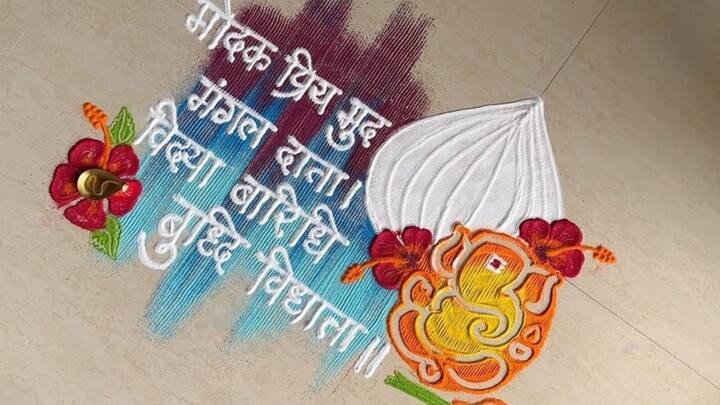 मोदक प्रिय मुद
मंगल दाता।
विद्या बारिधि
बुध्दि विधाता॥